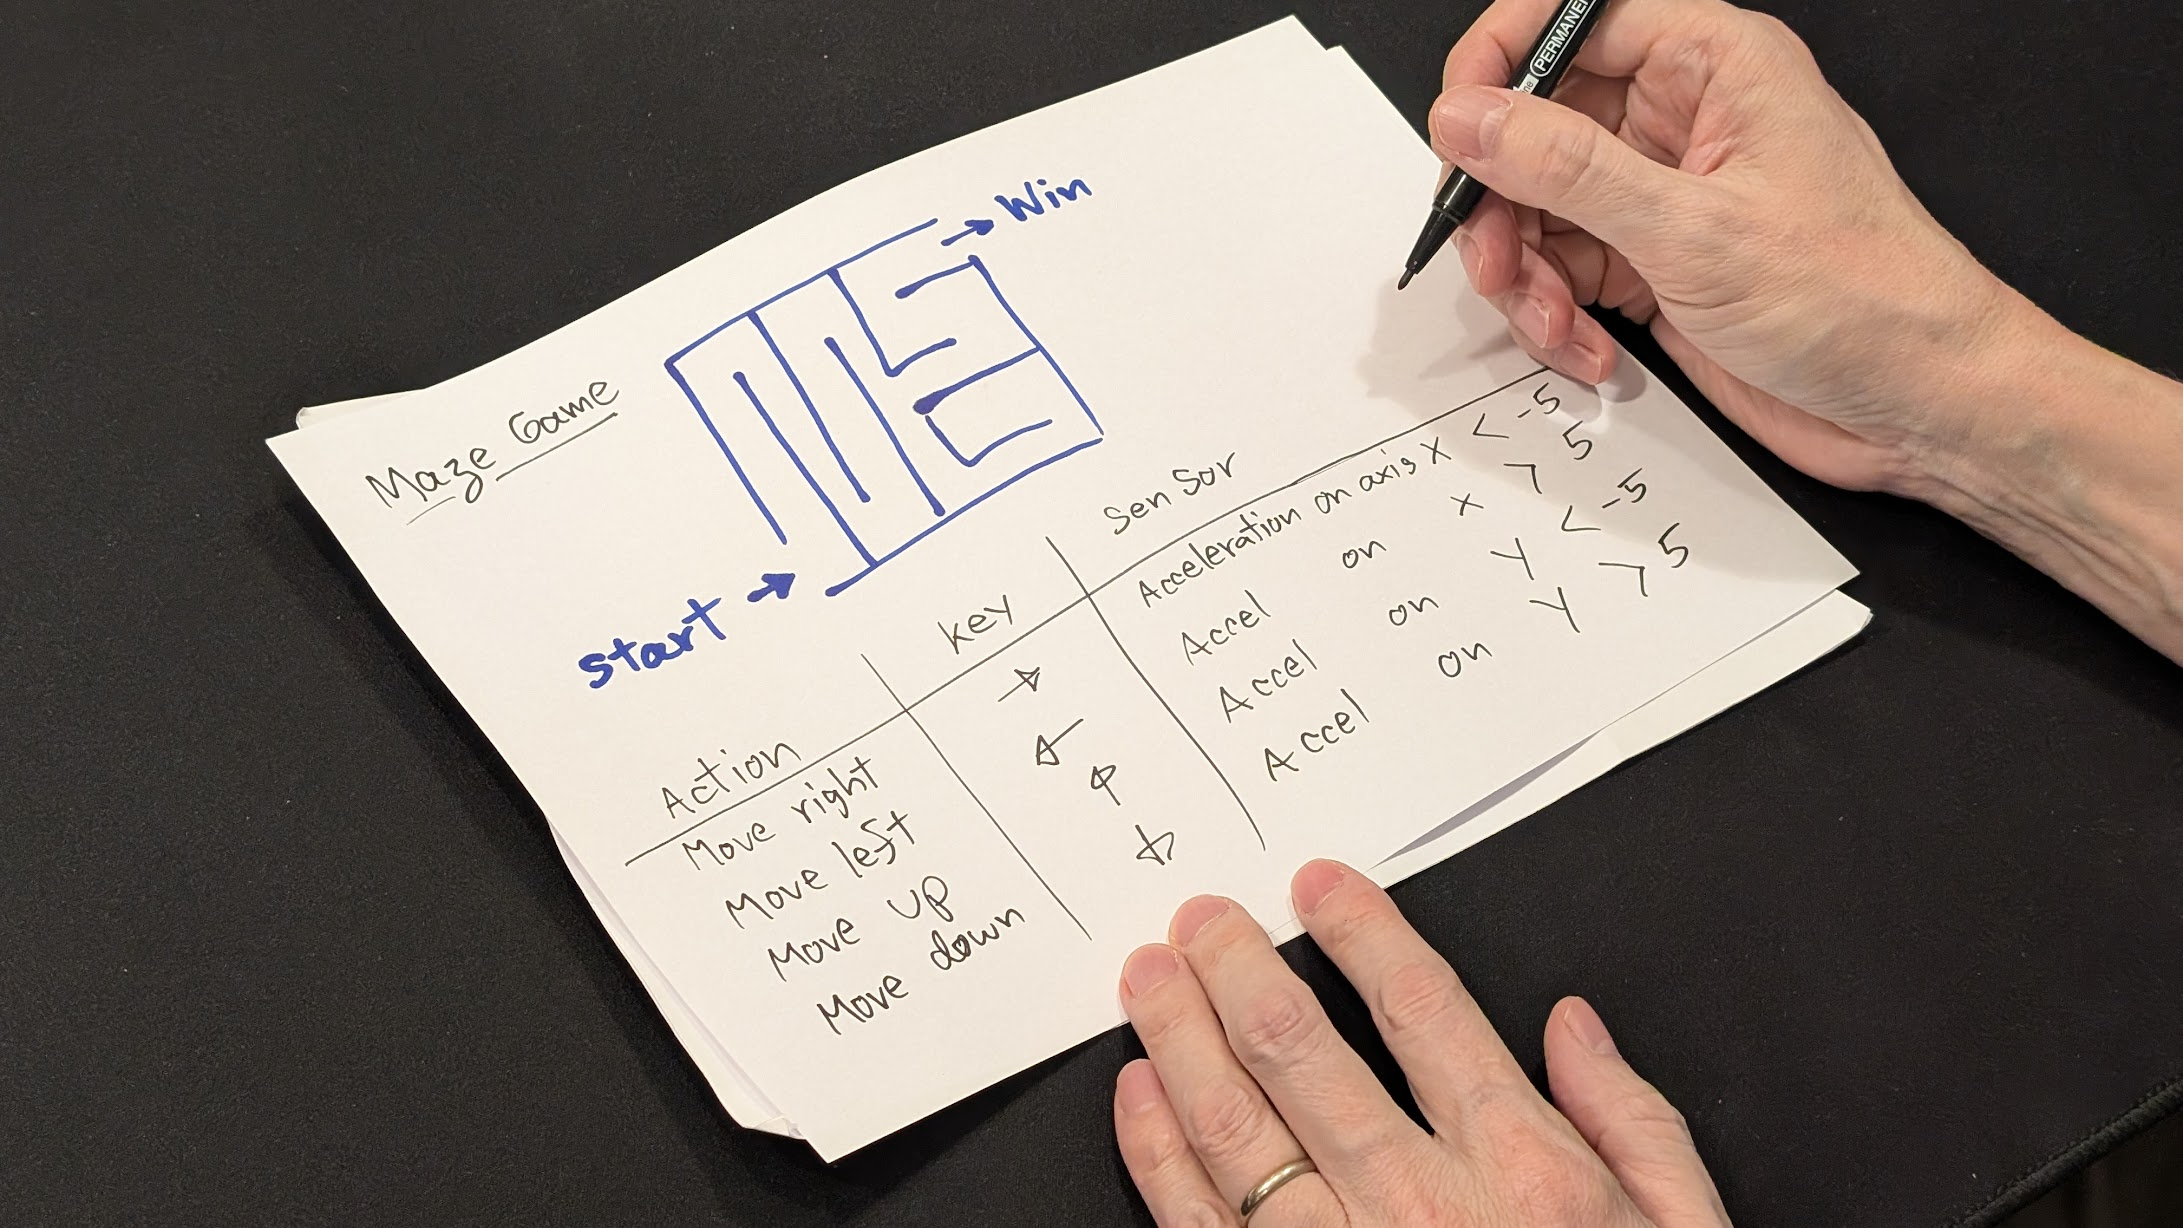 Maze Game
→ Win
Start →
Action | Key | Sensor
Move right | → | Acceleration on axis X < -5
Move left | ← | Accel on X > 5
Move up | ↑ | Accel on Y < -5
Move down | ↓ | Accel on Y > 5
PERMANE